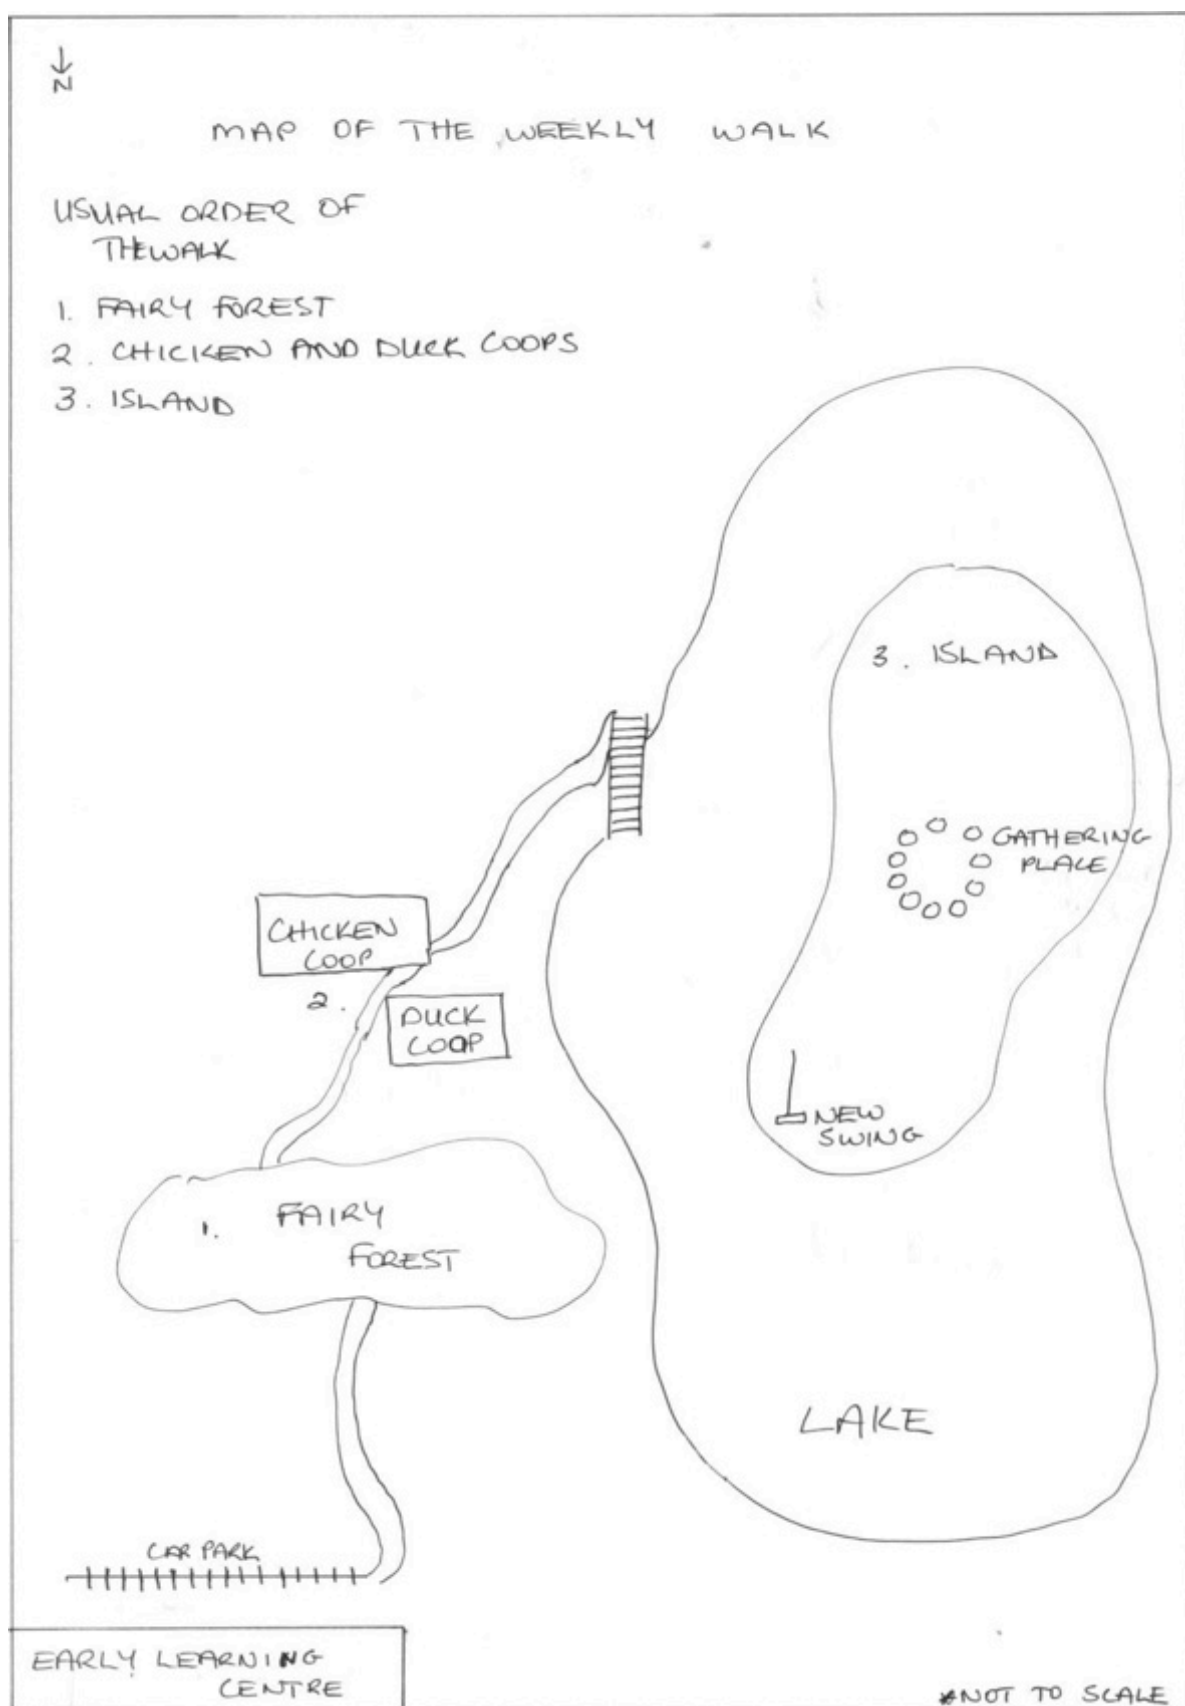 N
MAP OF THE WEEKLY WALK
USUAL ORDER OF
THE WALK
1. FAIRY FOREST
2. CHICKEN AND DUCK COOPS
3. ISLAND
3. ISLAND
GATHERING
PLACE
CHICKEN
COOP
2.
DUCK
COOP
NEW
SWING
1. FAIRY
FOREST
LAKE
CAR PARK
EARLY LEARNING
CENTRE
*NOT TO SCALE